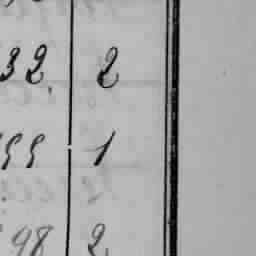 32. 2
55 1
98 2.